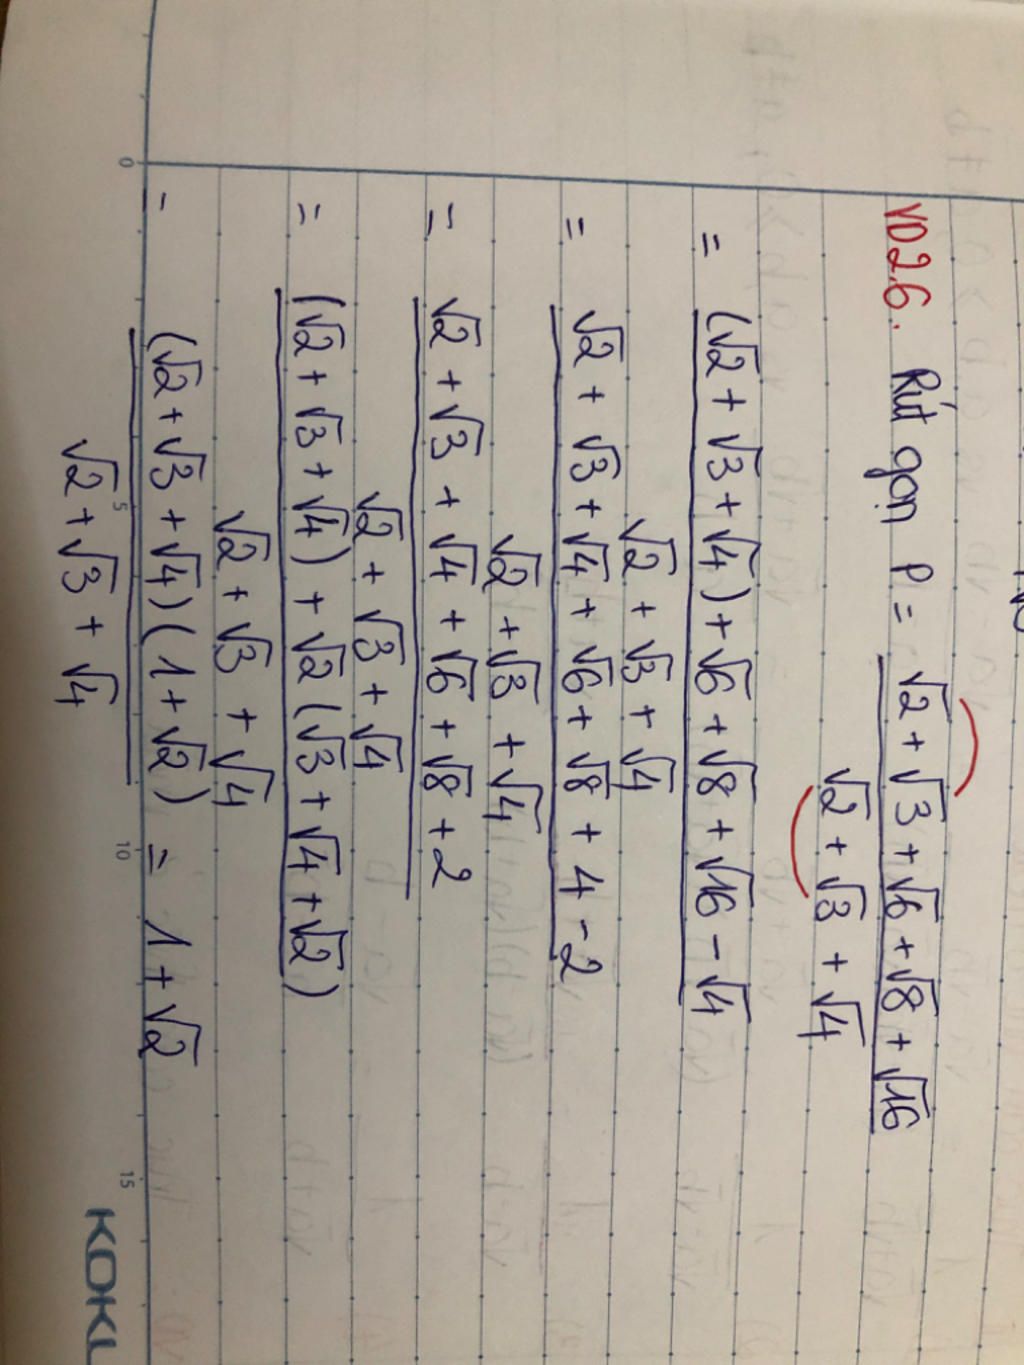 VD2.6. Rút gọn P = (√2 + √3 + √6 + √8 + √16) / (√2 + √3 + √4)
= ((√2 + √3 + √4) + √6 + √8 + √16 - √4) / (√2 + √3 + √4)
= (√2 + √3 + √4 + √6 + √8 + 4 - 2) / (√2 + √3 + √4)
= (√2 + √3 + √4 + √6 + √8 + 2) / (√2 + √3 + √4)
= ((√2 + √3 + √4) + √2(√3 + √4 + √2)) / (√2 + √3 + √4)
= ((√2 + √3 + √4)(1 + √2)) / (√2 + √3 + √4) = 1 + √2
0 5 10 15